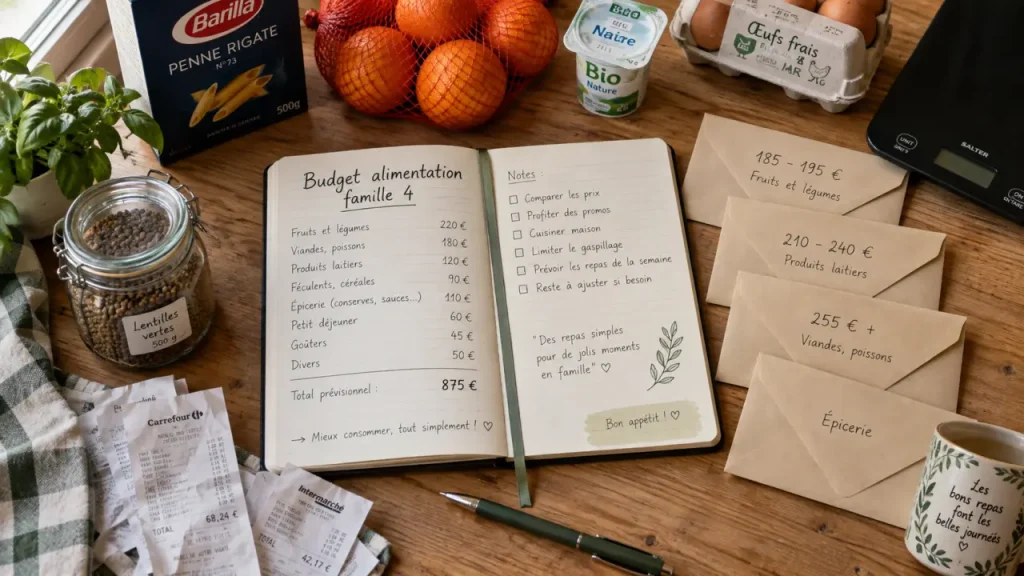 Barilla
PENNE RIGATE
N°73
500g
BIO
Bio
Nature
Œufs frais
SALTER
Budget alimentation
famille 4
Fruits et légumes 220 €
Viandes, poissons 180 €
Produits laitiers 120 €
Féculents, céréales 90 €
Épicerie (conserves, sauces...) 110 €
Petit déjeuner 60 €
Goûters 45 €
Divers 50 €
Total prévisionnel : 875 €
→ Mieux consommer, tout simplement ! ♡
Notes :
Comparer les prix
Profiter des promos
Cuisiner maison
Limiter le gaspillage
Prévoir les repas de la semaine
Reste à ajuster si besoin
"Des repas simples
pour de jolis moments
en famille" ♡
Bon appétit ! ♡
185 - 195 €
Fruits et légumes
210 - 240 €
Produits laitiers
255 € +
Viandes, poissons
Épicerie
Lentilles
vertes
500 g
Carrefour
TOTAL 68,24 €
Intermarché
TOTAL 42,17 €
Les
bons repas
font les
belles journées
♡